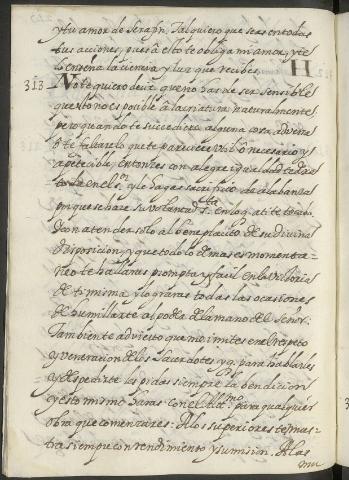 y tu amor de Serafin. Tal quiero que seas en todas
tus acciones, pues à esto te obliga mi amor, y te
enseña la ciencia y luz que recibes.
313 No te quiero decir que no has de ser sensible
que esto no es posible à la criatura naturalmente,
pero quando te sucediere alguna cosa adversa
ò te faltare lo que te pareciere util ò necesario y
apetecible, entonces con alegre igualdad te dexa
toda en el S.or y le hagas sacrificio de alabanza
porque se haze su voluntad S.ta en lo q a ti te tocaba.
Y con atender solo al beneplacito de su divina
disposicion, y que todo lo demas es momenta-
neo te hallaras prompta y facil en la victoria
de ti misma y lograras todas las ocasiones
de humillarte al poder de la mano del Señor.
Tambien te advierto que me imites en el respeto
y veneracion de los Sacerdotes y q para hablarles
y despedirte les pidas siempre la bendicion
y esto mismo haras con el Alt.mo para qualquier
obra que començares. A los superiores te mues-
tra siempre con rendimiento y sumision. A las
mu